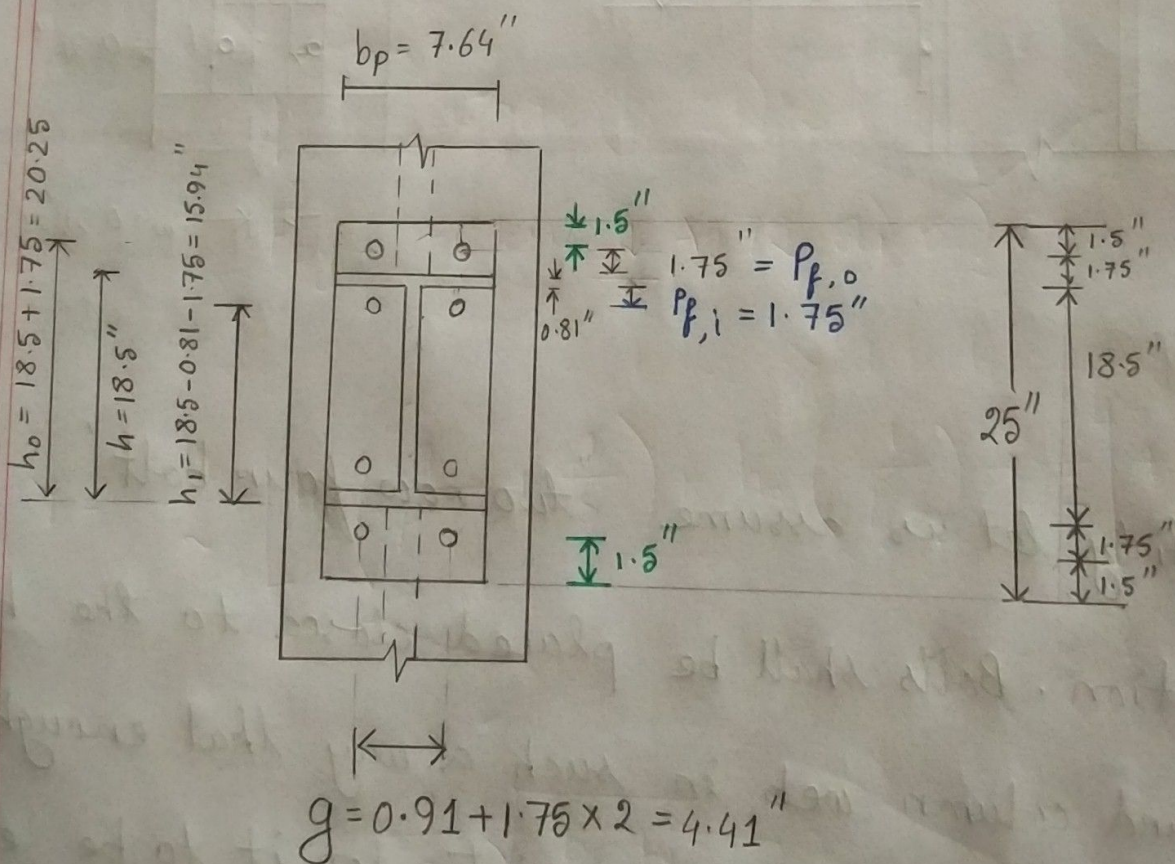 bp = 7.64"
h0 = 18.5 + 1.75 = 20.25
h = 18.5"
h1 = 18.5 - 0.81 - 1.75 = 15.94"
1.5"
1.75" = Pf,o
Pf,i = 1.75"
0.81"
1.5"
25"
1.5"
1.75"
18.5"
1.75"
1.5"
g = 0.91 + 1.75 x 2 = 4.41"